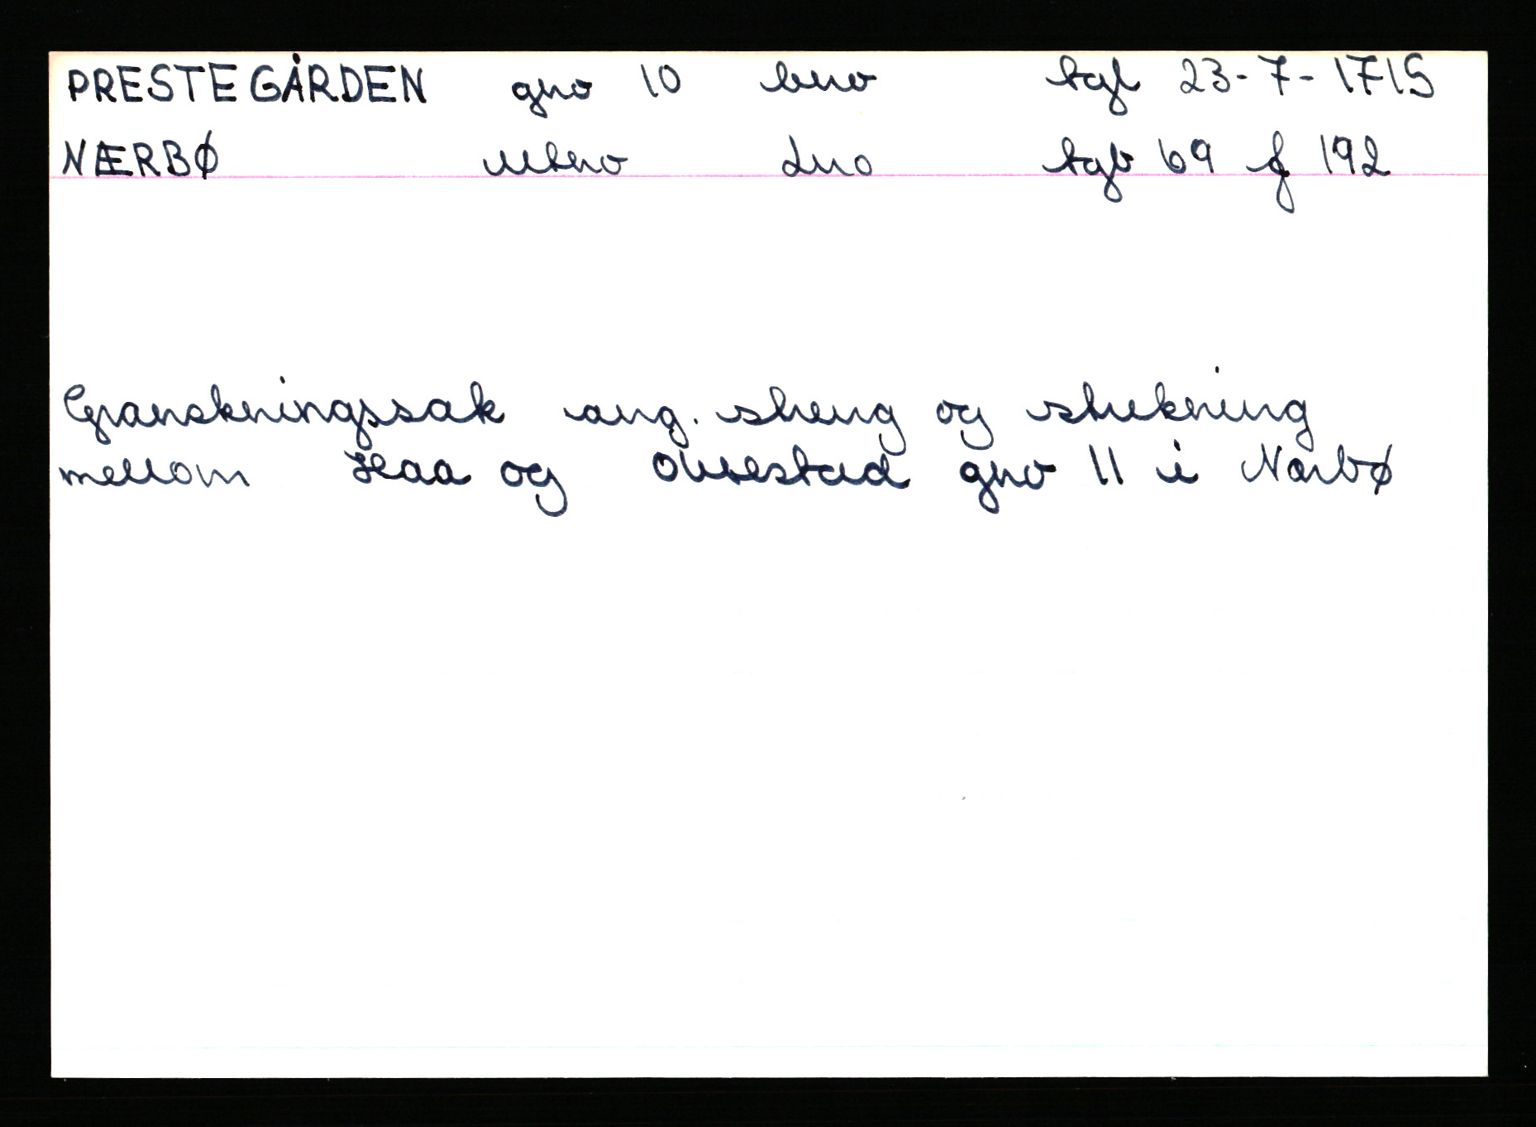 PRESTEGÅRDEN gno 10 bno tgl 23-7-1715
NÆRBØ Mtno Lno tgb 69 f 192
Granskningssak ang. og strekning
mellom Haa og Obrestad gno 11 i Nærbø